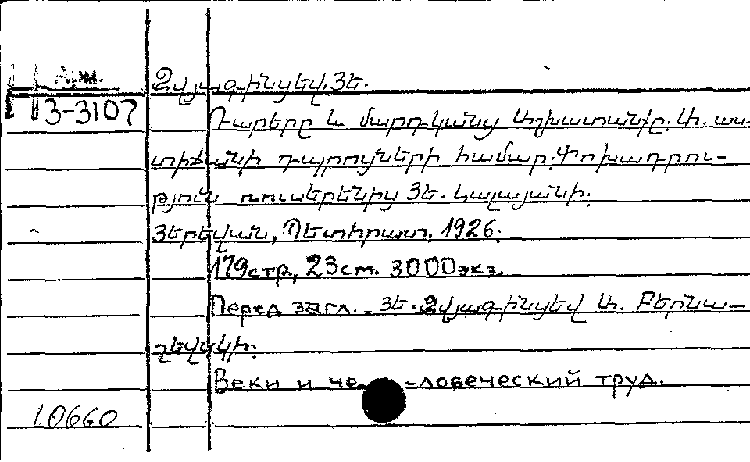 Арм.
3-3107
Զվյագինցեվ, ՅԵ.
Դարերը և մարդկանց աշխատանքը. Ա. աս-
տիճանի դպրոցների համար. Փոխադրու-
թյուն ռուսերենից ՅԵ. Կալայանի.
ՅԵրեվան, Պետհրատ, 1926.
179стр, 23см. 3000экз
Перед загл. _ ՅԵ. Զվյագինցեվ և Ա. Բեռնա-
Веки и человеческий труд.
10660